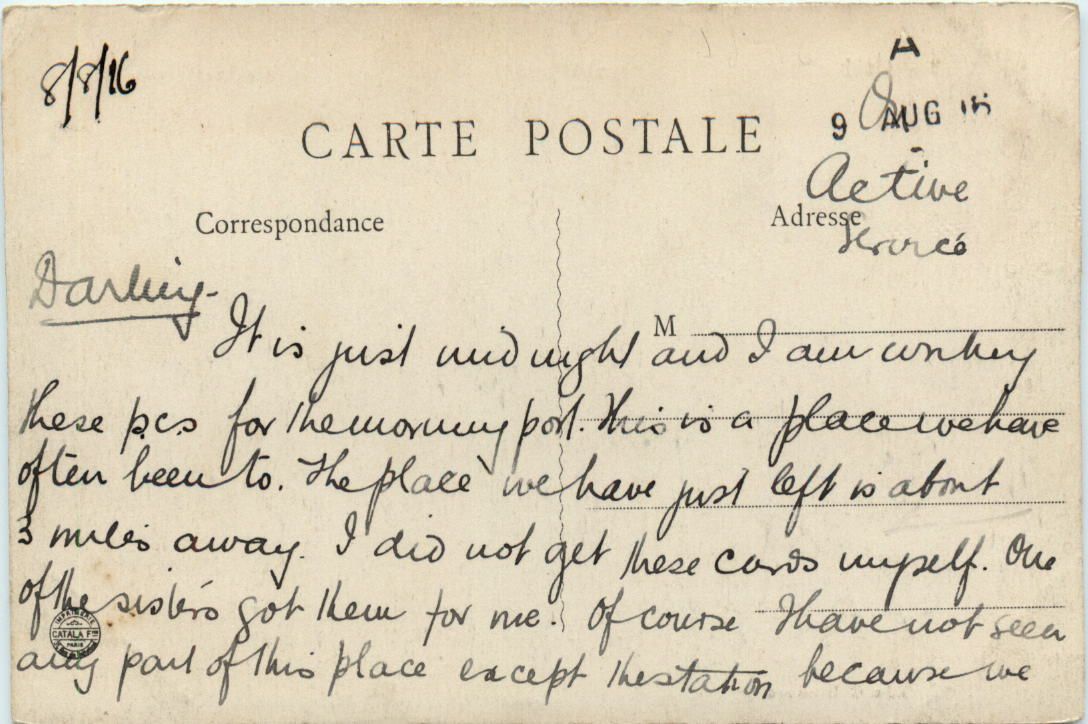 8/8/16
A
9 AUG
CARTE POSTALE
Active
Service
Correspondance
Adresse
Darling-
M
It is just midnight and I am writing
these p.c.s for the morning post. This is a place we have
often been to. The place we have just left is about
3 miles away. I did not get these cards myself. One
of the sisters got them for me. Of course I have not seen
any part of this place except the station because we
IMPRIMERIE
CATALA Fres
PARIS